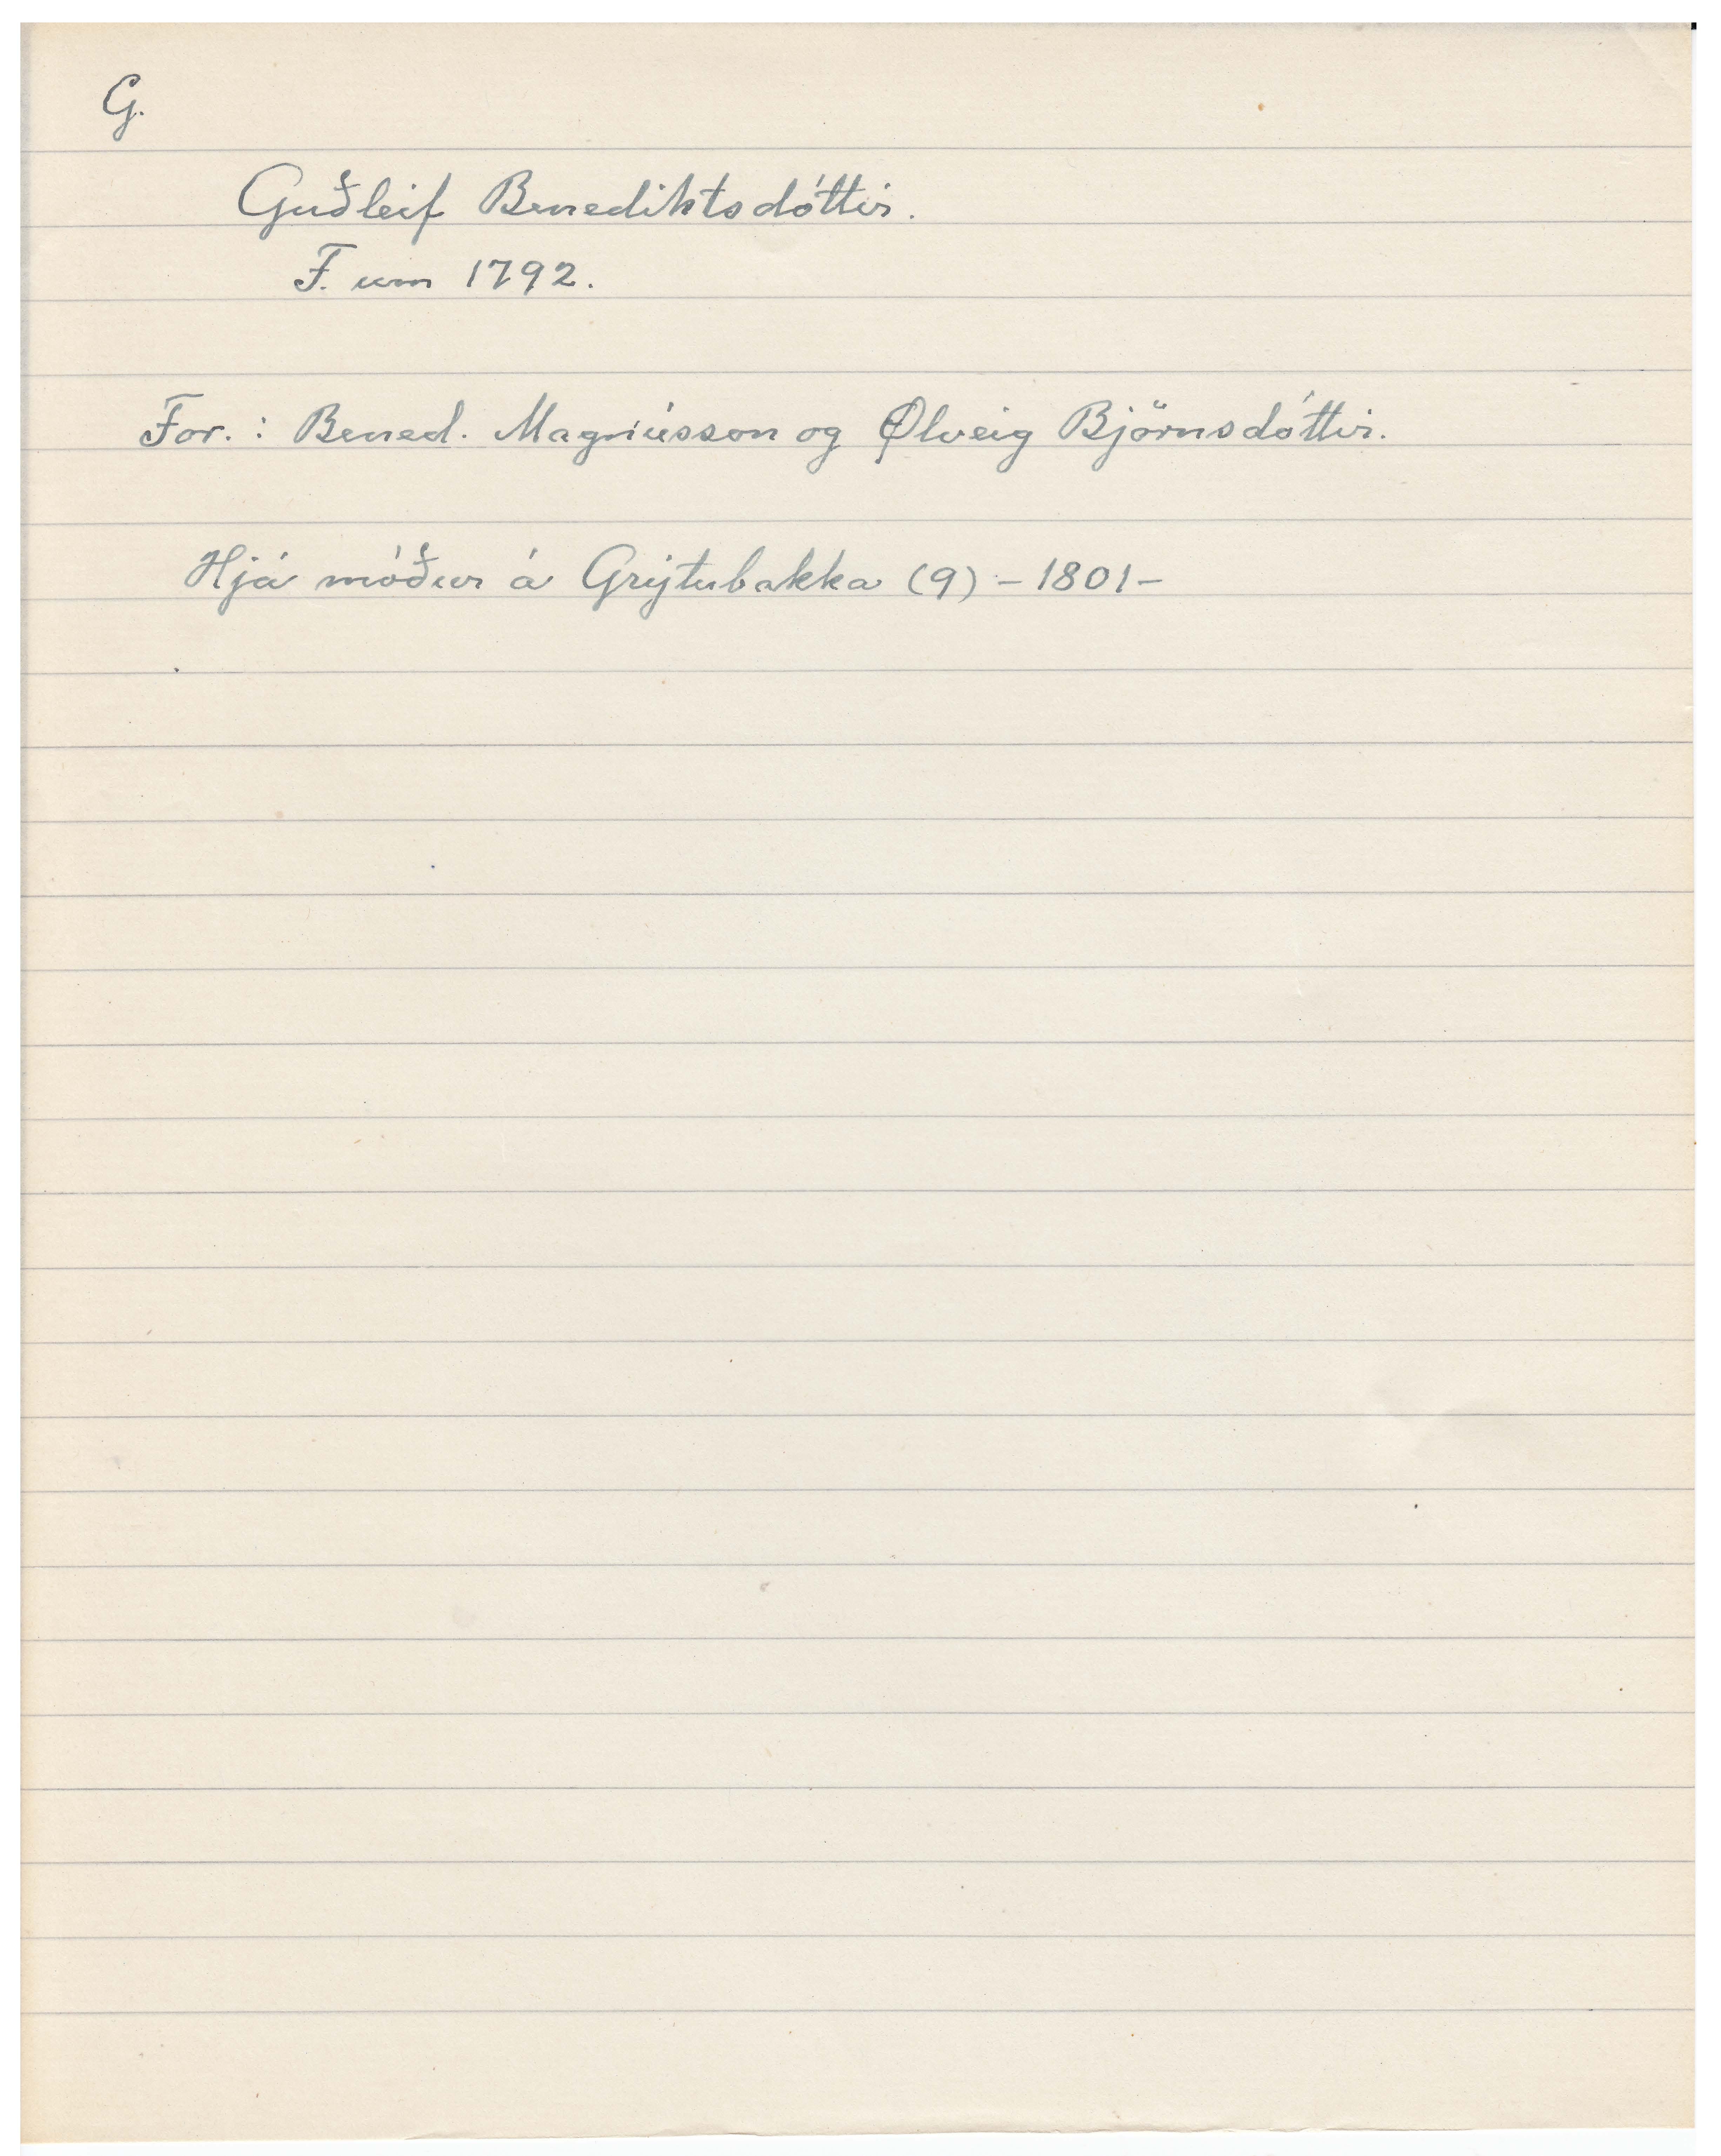 G.
Guðleif Benediktsdóttir.
F. um 1792.
For.: Bened. Magnússon og Ølveig Björnsdóttir.
Hjá móður á Grýtubakka (9) - 1801-